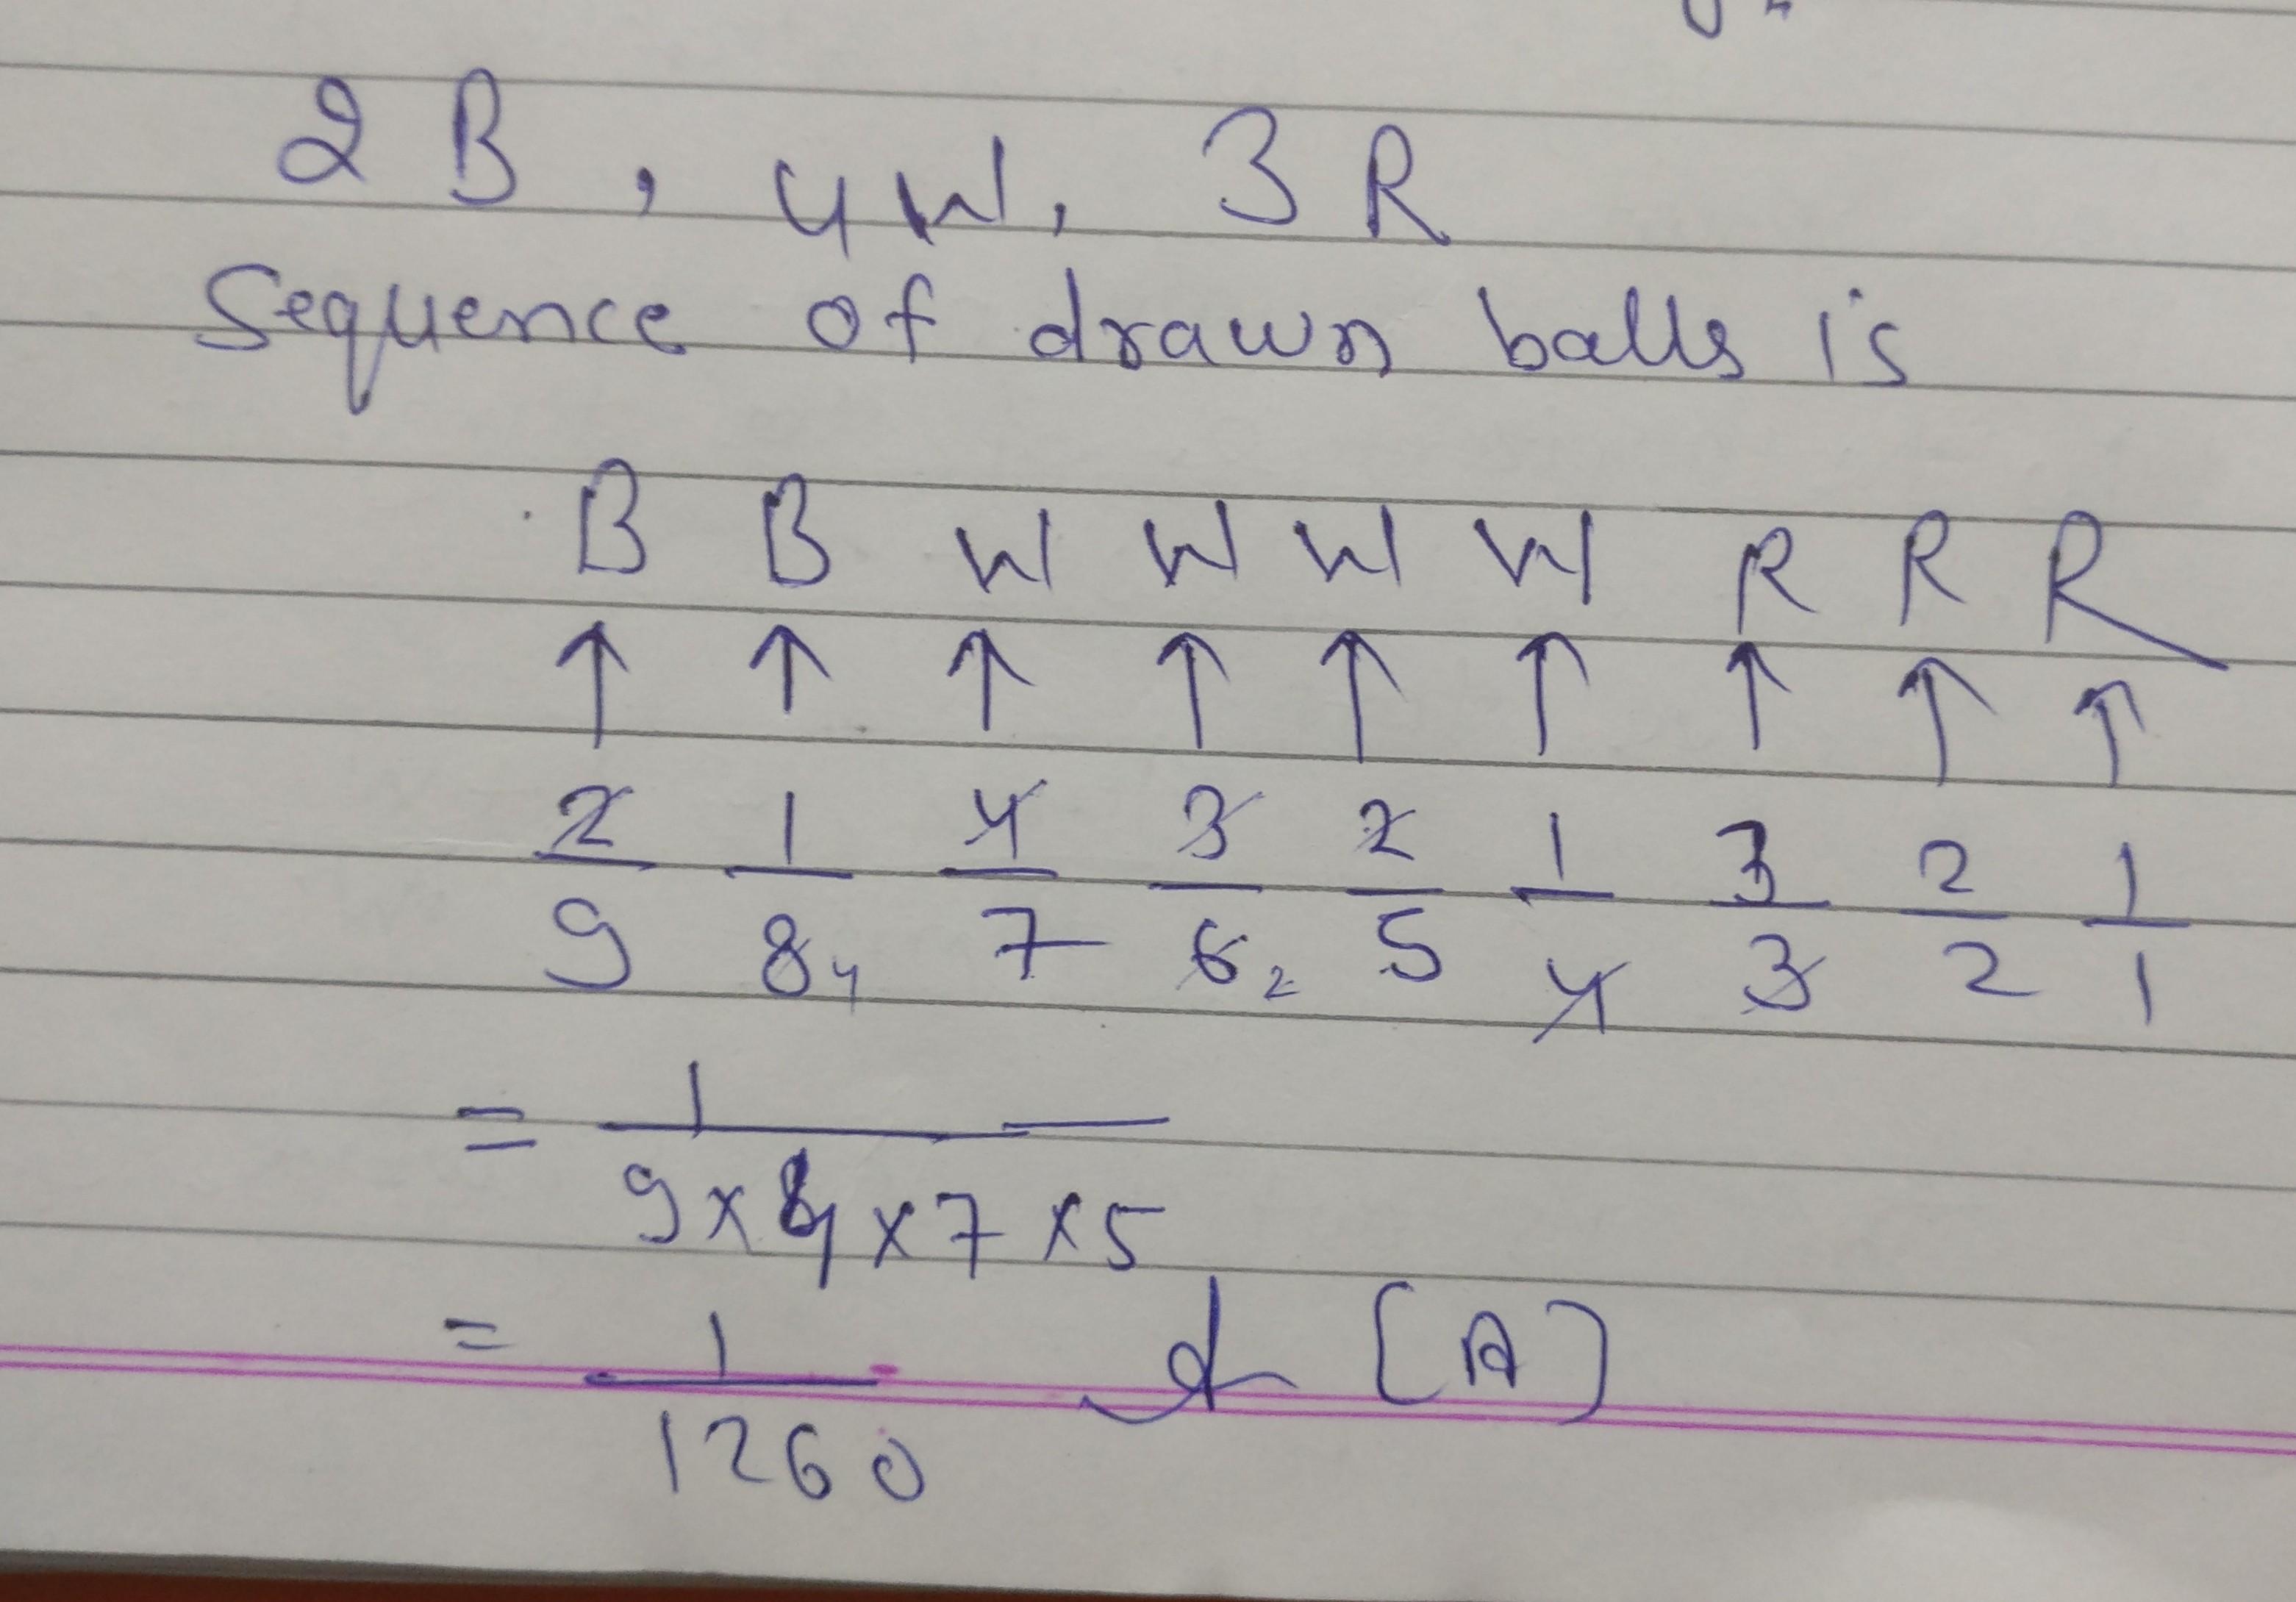 2 B, 4W, 3 R
Sequence of drawn balls is
B B W W W W R R R
↑ ↑ ↑ ↑ ↑ ↑ ↑ ↑ ↑
2/9 1/8 4 4/7 3/6 2 2/5 1/4 3/3 2/2 1/1
= 1/(9×4×7×5)
= 1/1260 [A]